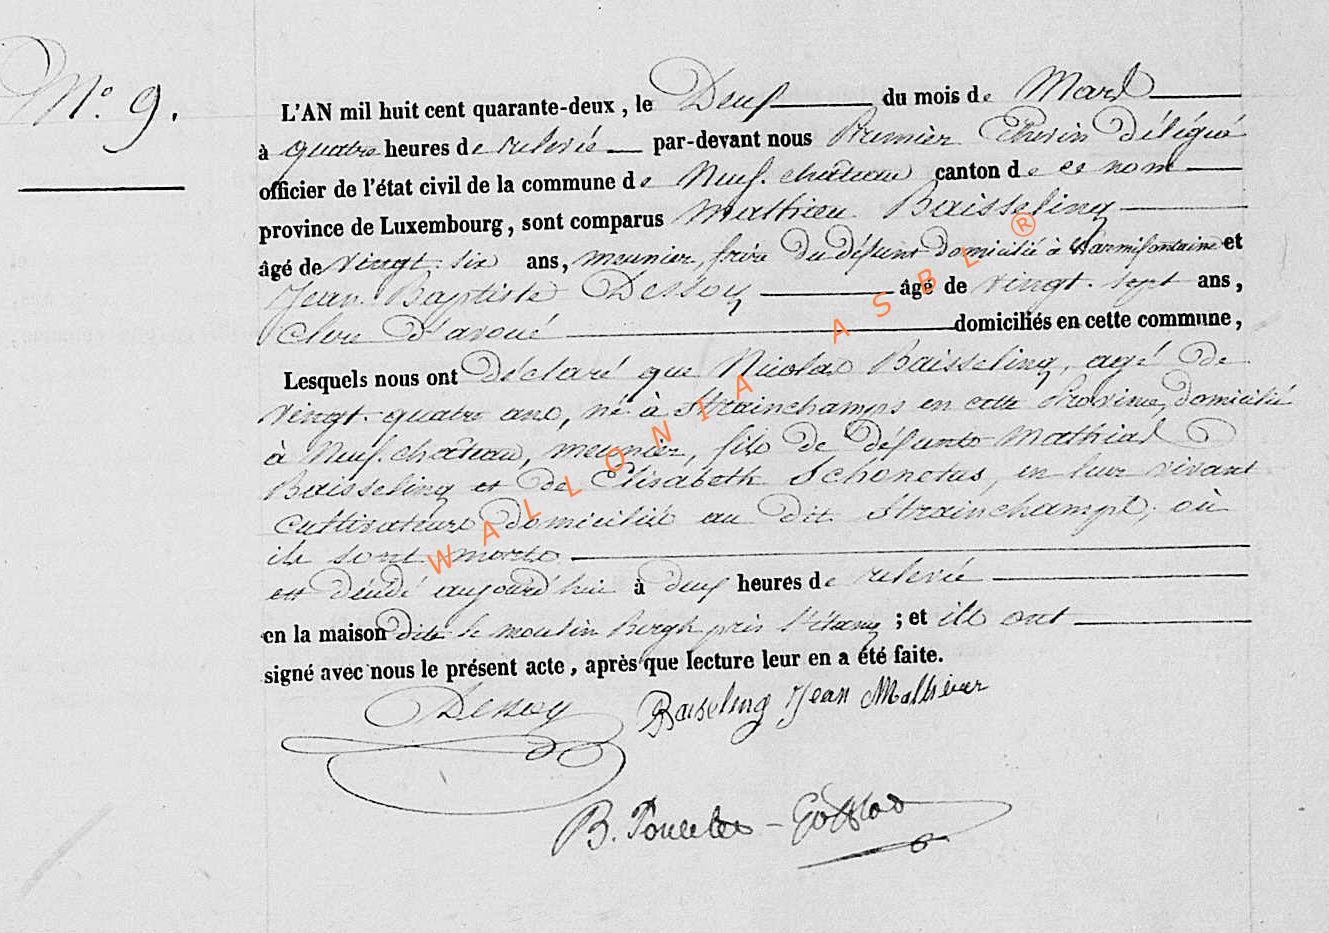 N° 9.
L'AN mil huit cent quarante-deux, le Deux du mois de Mars
à quatre heures de relevée par-devant nous Premier Echevin Délégué
officier de l'état civil de la commune de Neufchâteau canton de ce nom
province de Luxembourg, sont comparus Mathieu Baisseling
âgé de vingt-six ans, meunier, frère du défunt domicilié à Warmifontaine et
Jean Baptiste Dessoy âgé de vingt-sept ans,
Clerc d'avoué domiciliés en cette commune,
Lesquels nous ont déclaré que Nicolas Baisseling, agé de
vingt-quatre ans, né à Strainchamps en cette Province, domicilié
à Neufchâteau, meunier, fils de défunts Mathias
Baisseling et de Elisabeth Schonetus, en leur vivant
cultivateurs domiciliés au dit Strainchamps, où
ils sont morts
est décédé aujourd'hui à deux heures de relevée
en la maison dite le moulin Bergh près l'étang ; et ils ont
signé avec nous le présent acte, après que lecture leur en a été faite.
Dessoy Baiseling Jean Mathieu
B. Poncelet - Gofflot
WALLONIA ASBL ®